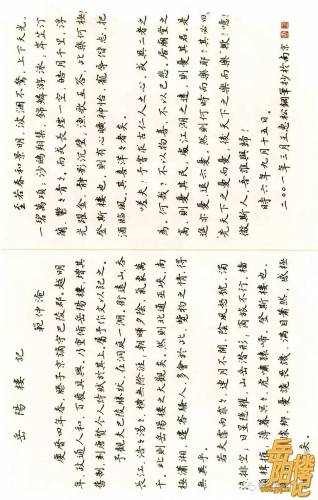 岳陽樓記
范仲淹
慶曆四年春，滕子京謫守巴陵郡。越明
年，政通人和，百廢具興，乃重修岳陽樓，增其
舊制，刻唐賢今人詩賦於其上，屬予作文以記之。
予觀夫巴陵勝狀，在洞庭一湖。銜遠山，吞
長江，浩浩湯湯，橫無際涯；朝暉夕陰，氣象萬
千。此則岳陽樓之大觀矣。然則北通巫峽，南
極瀟湘，遷客騷人，多會於此，覽物之情，得
無異乎？
若夫霪雨霏霏，連月不開，陰風怒號，濁
浪排空；日星隱曜，山岳潛形；商旅不行，檣
傾楫摧；薄暮冥冥，虎嘯猿啼。登斯樓也，
則有去國懷鄉，憂讒畏譏，滿目蕭然，感極
而悲者矣。
至若春和景明，波瀾不驚，上下天光，
一碧萬頃；沙鷗翔集，錦鱗游泳，岸芷汀
蘭，鬱鬱青青。而或長煙一空，皓月千里，浮
光耀金，靜影沉璧，漁歌互答，此樂何極！
登斯樓也，則有心曠神怡，寵辱偕忘，把
酒臨風，其喜洋洋者矣。
嗟夫！予嘗求古仁人之心，或異二者之
為，何哉？不以物喜，不以己悲。居廟堂之
高，則憂其民；處江湖之遠，則憂其君。是
進亦憂，退亦憂。然則何時而樂耶？其必曰：
先天下之憂而憂，後天下之樂而樂歟！噫！
微斯人，吾誰與歸！
時六年九月十五日。
二〇〇一年三月王思松鋼筆抄於南京
岳陽樓